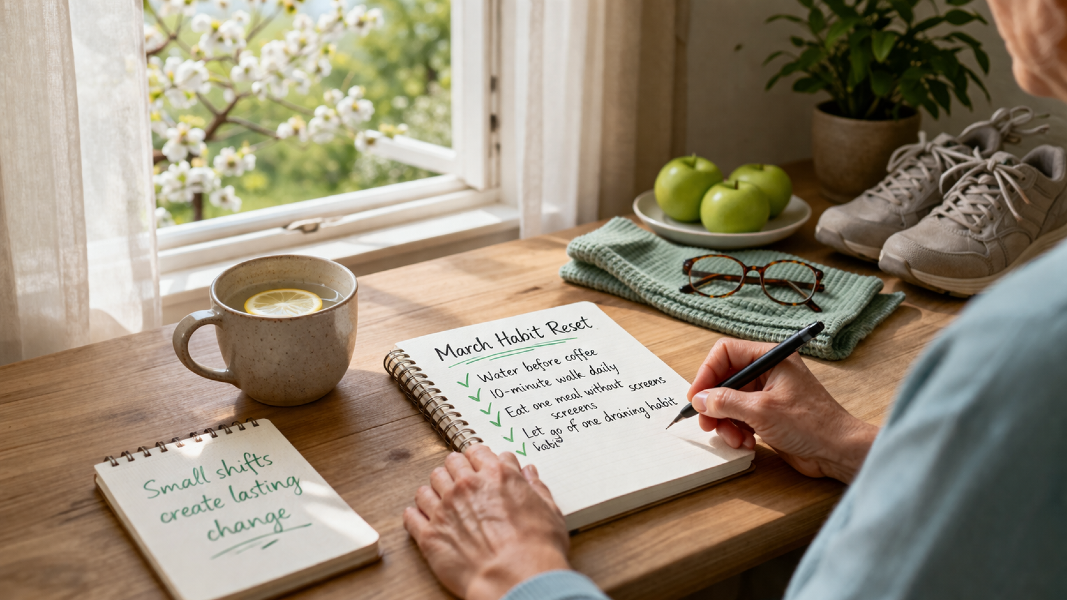 March Habit Reset
Water before coffee
10-minute walk daily
Eat one meal without screens
screeens
Let go of one draining habit
habit
Small shifts
create lasting
change